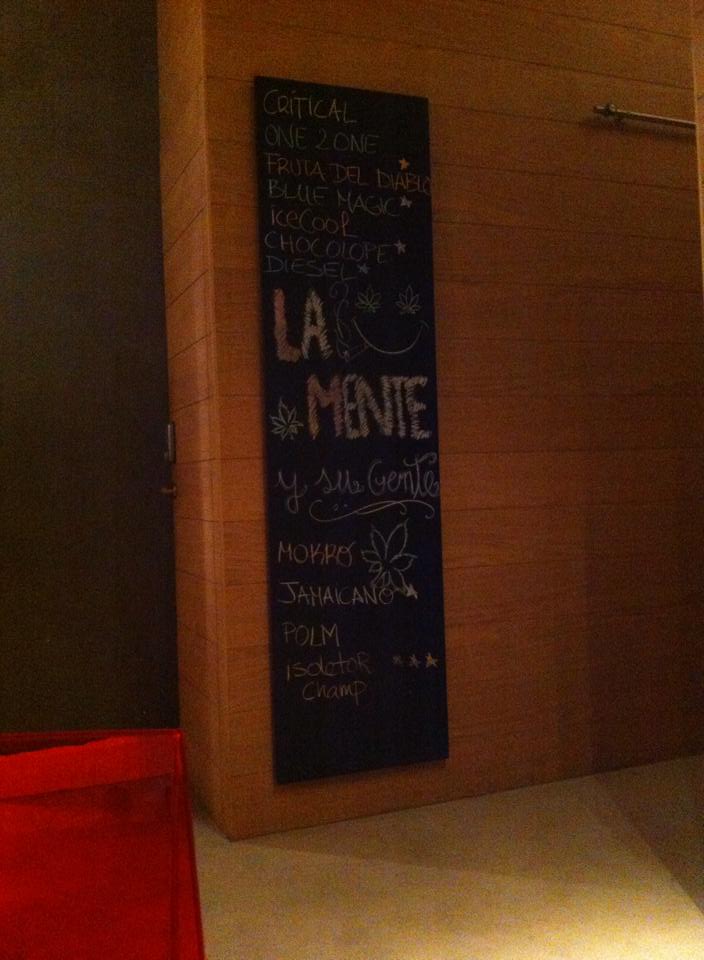 CRITICAL
ONE 2 ONE
FRUTA DEL DIABLO
BLUE MAGIC
iceCool
CHOCOLOPE
DIESEL
LA
MENTE
y su Gente
MOKRO
JAMAICANO
POLM
isolatoR
Champ